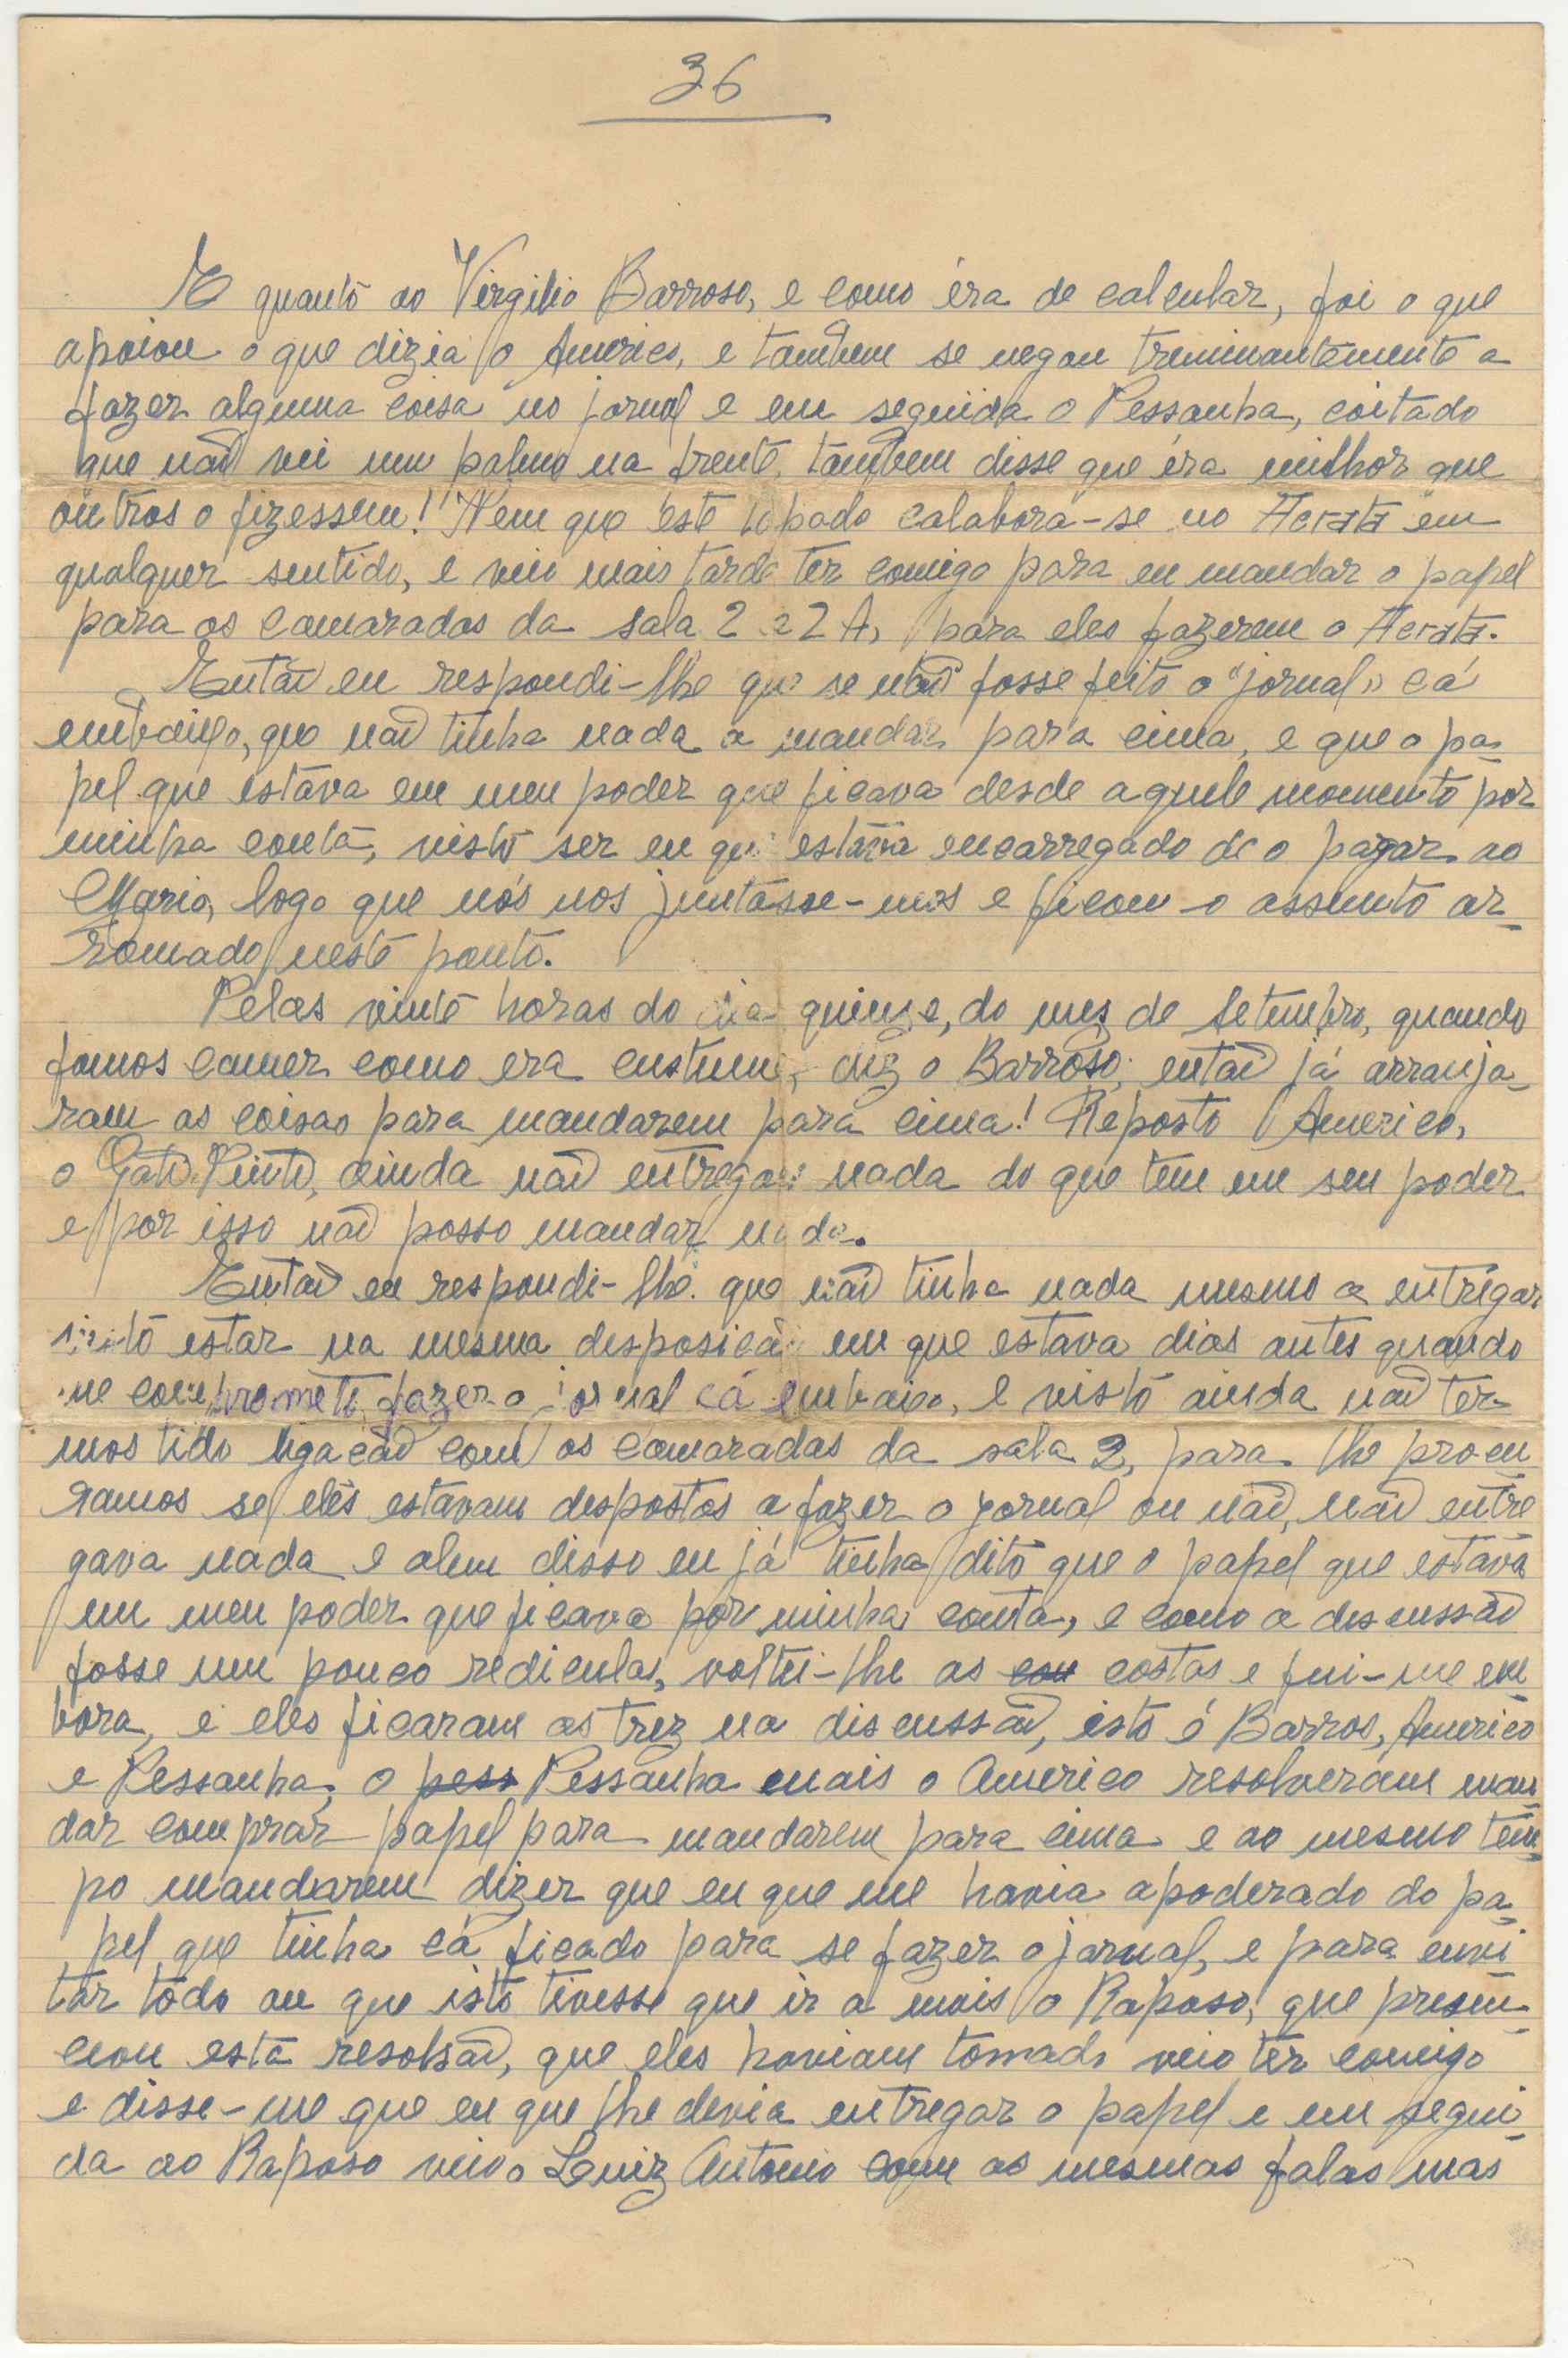 36
E quanto ao Virgilio Barroso, e como éra de calcular, foi o que
apoiou o que dizia o Americo, e tambem se negou treminantemente a
fazer alguma coisa no jornal e em seguida o Pessanha, coitado
que não vei um palmo na frente, tambem disse que éra milhor que
outros o fizessem! Nem que este topado calabora-se no Acrata em
qualquer sentido, e veio mais tarde ter comigo para eu mandar o papel
para os camaradas da sala 2 e 2 A, para eles fazerem o Acrata.
Então eu respondi-lhe que se não fosse feito o "jornal" cá
embaixo, que não tinha nada a mandar para cima, e que o pa-
pel que estava em meu poder que ficava desde aquele momento por
minha conta, visto ser eu que estava encarregado de o pagar ao
Mario, logo que nós nos juntásse-mos e ficou o assunto ar-
romado neste ponto.
Pelas vinte horas do dia quinze, do mez de Setembro, quando
fomos comer como era custume, diz o Barroso; então já arranja-
ram as coisas para mandarem para cima! Reposto Americo,
o Gato Pinto, ainda não entregou nada do que tem em seu poder
e por isso não posso mandar nada.
Então eu respondi-lhe que não tinha nada mesmo a entregar
visto estar na mesma desposicão em que estava dias antes quando
me comprometi fazer o jornal cá embaixo, e visto ainda não ter-
mos tido ligacão com os camaradas da sala 2, para lhe procu
ramos se elês estavam despostos a fazer o jornal ou não, não entre
gava nada e alem disso eu já tinha dito que o papel que estava
em meu poder que ficava por minha conta, e como a discussão
fosse um pouco rediculas, voltei-lhe as cou costas e fui-me em
bora, e eles ficaram os trez na discussão, isto é Barros, Americo
e Pessanha, o pess Pessanha mais o Americo resolveram man-
dar comprar papel para mandarem para cima e ao mesmo tem-
po mandarem dizer que eu que me havia apoderado do pa-
pel que tinha cá ficado para se fazer o jornal, e para envi
tar todo ou que isto tivesse que ir a mais o Raposo, que presen-
ciou esta resolsão, que eles haviam tomado veio ter comigo
e disse-me que eu que lhe devia entregar o papel e em segui-
da ao Raposo veio o Luiz Antonio com as mesmas falas mas